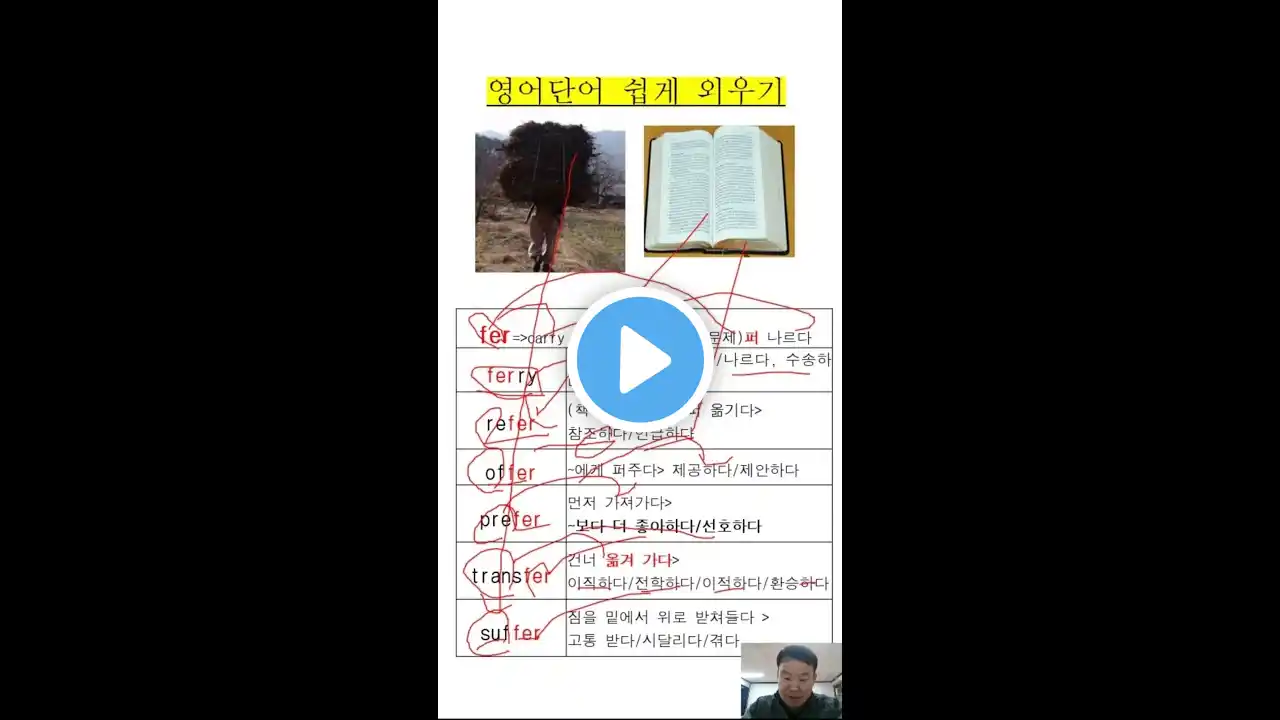 영어단어 쉽게 외우기
fer =>carry 문제)퍼 나르다
ferry /나르다, 수송하
refer (책 옮기다>
참조하다/언급하다
offer ~에게 퍼주다> 제공하다/제안하다
prefer 먼저 가져가다>
~보다 더 좋아하다/선호하다
transfer 건너 옮겨 가다>
이직하다/전학하다/이적하다/환승하다
suffer 짐을 밑에서 위로 받쳐들다 >
고통 받다/시달리다/겪다